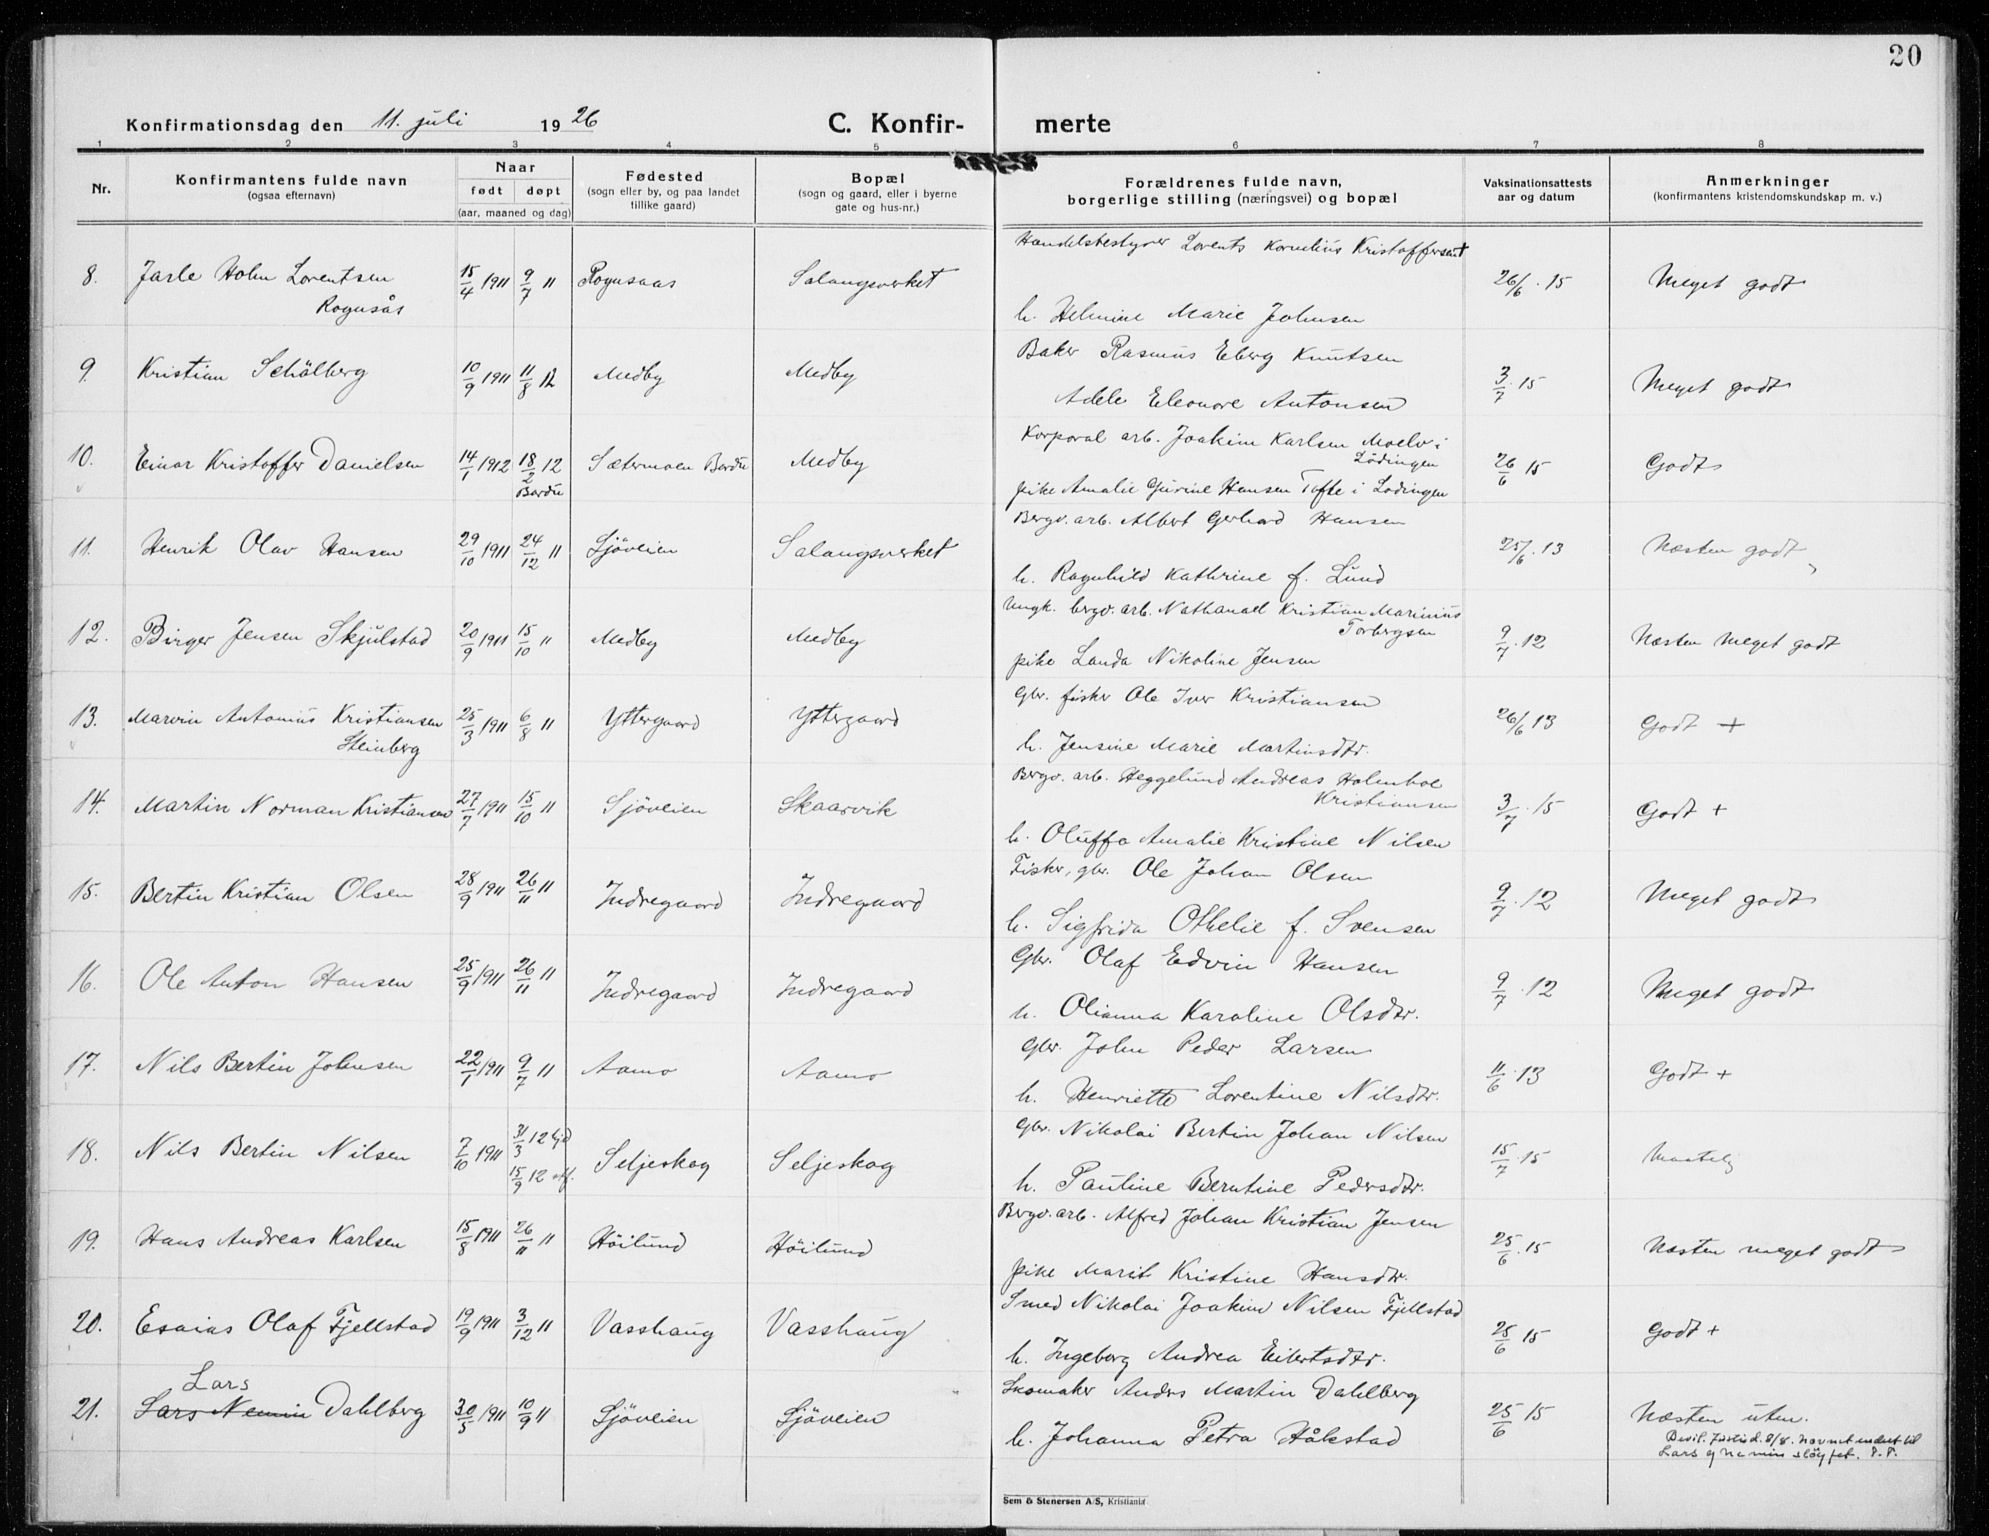 20
Konfirmationsdag den 11. juli 1926
C. Konfir- merte
1 2 3 4 5 6 7 8
Nr.
Konfirmantens fulde navn
(ogsaa efternavn)
Naar
født døpt
(aar, maaned og dag)
Fødested
(sogn eller by, og paa landet
tillike gaard)
Bopæl
(sogn og gaard, eller i byerne
gate og hus-nr.)
Forældrenes fulde navn,
borgerlige stilling (næringsvei) og bopæl
Vaksinationsattests
aar og datum
Anmerkninger
(konfirmantens kristendomskundskap m. v.)
Handelsbestyrer Lorents Kornelius Kristoffersen
8. Jarle Holm Lorentsen 15/4 1911 9/7 11 Rognsaas Salangsverket 26/6.15 Meget godt
Rognsås
h. Helmine Marie Johnsen
Baker Rasmus Eberg Knutsen
9. Kristian Schölberg 10/9 1911 11/8 12 Medby Medby 3/7.15 Meget godt
Adele Eleonore Antonsen
Korporal arb. Joakim Karlsen Moelv i
Lödingen
10. Einar Kristoffer Danielsen 14/1 1912 18/2 12 Sætermoen Bardu Medby 26/6 15 Godt
Bardu
pike Amalie Gurine Hansen Tofte i Lödingen
Bergv. arb. Albert Gerhard Hansen
11. Henrik Olav Hansen 29/10 1911 24/12 11 Sjöveien Salangsverket 25/6.13 Næsten godt
h. Ragnhild Kathrine f. Lund
Ungk. bergv. arb. Nathanael Kristian Marinius
Torbergsen
12. Birger Jensen Skjulstad 20/9 1911 15/10 11 Medby Medby 9/7.12 Næsten meget godt
pike Landa Nikoline Jensen
Gbr. fisker Ole Iver Kristiansen
13. Marvin Antonius Kristiansen 25/3 1911 6/8 11 Yttergaard Yttergaard 26/6 13 Godt +
Steinberg
h. Jensine Marie Martinsdtr.
Bergv. arb. Heggelund Andreas Holmboe
Kristiansen
14. Martin Norman Kristiansen 27/7 1911 15/10 11 Sjöveien Skaarvik 3/7.15 Godt +
h. Oluffa Amalie Kristine Nilsen
Fisker, gbr. Ole Johan Olsen
15. Bertin Kristian Olsen 28/9 1911 26/11 11 Indregaard Indregaard 9/7.12 Meget godt
h. Sigfrida Othelie f. Svensen
Gbr. Olaf Edvin Hansen
16. Ole Anton Hansen 25/9 1911 26/11 11 Indregaard Indregaard 9/7.12 Meget godt
h. Olianna Karoline Olsdtr.
Gbr. John Peder Larsen
17. Nils Bertin Johnsen 22/1 1911 9/7 11 Aamo Aamo 11/6.13 Godt +
h. Henriette Lorentine Nilsdtr.
Gbr. Nikolai Bertin Johan Nilsen
18. Nils Bertin Nilsen 7/10 1911 31/3 12 hjd Seljeskog Seljeskog 15/7.15 Maatelig
15/9 12 stf.
h. Pauline Berntine Pedersdtr.
Bergv. arb. Alfred Johan Kristian Jensen
19. Hans Andreas Karlsen 15/8 1911 26/11 11 Höilund Höilund 25/6.15 Næsten meget godt
pike Marit Kristine Hansdtr.
Smed Nikolai Joakim Nilsen Fjellstad
20. Esaias Olaf Fjellstad 19/9 1911 3/12 11 Vasshaug Vasshaug 25/6 15 Godt +
h. Ingeborg Andrea Eilertsdtr.
Lars
Skomaker Anders Martin Dahlberg
21. Lars Nemin Dahlberg 30/5 1911 10/9 11 Sjöveien Sjöveien 25/6 15 Næsten uten.
h. Johanna Petra Håkstad
Bevil. Justisd. 8/8. navnet endret til
Lars og Nemin slöyfet.
Sem & Stenersen A/S, Kristiania